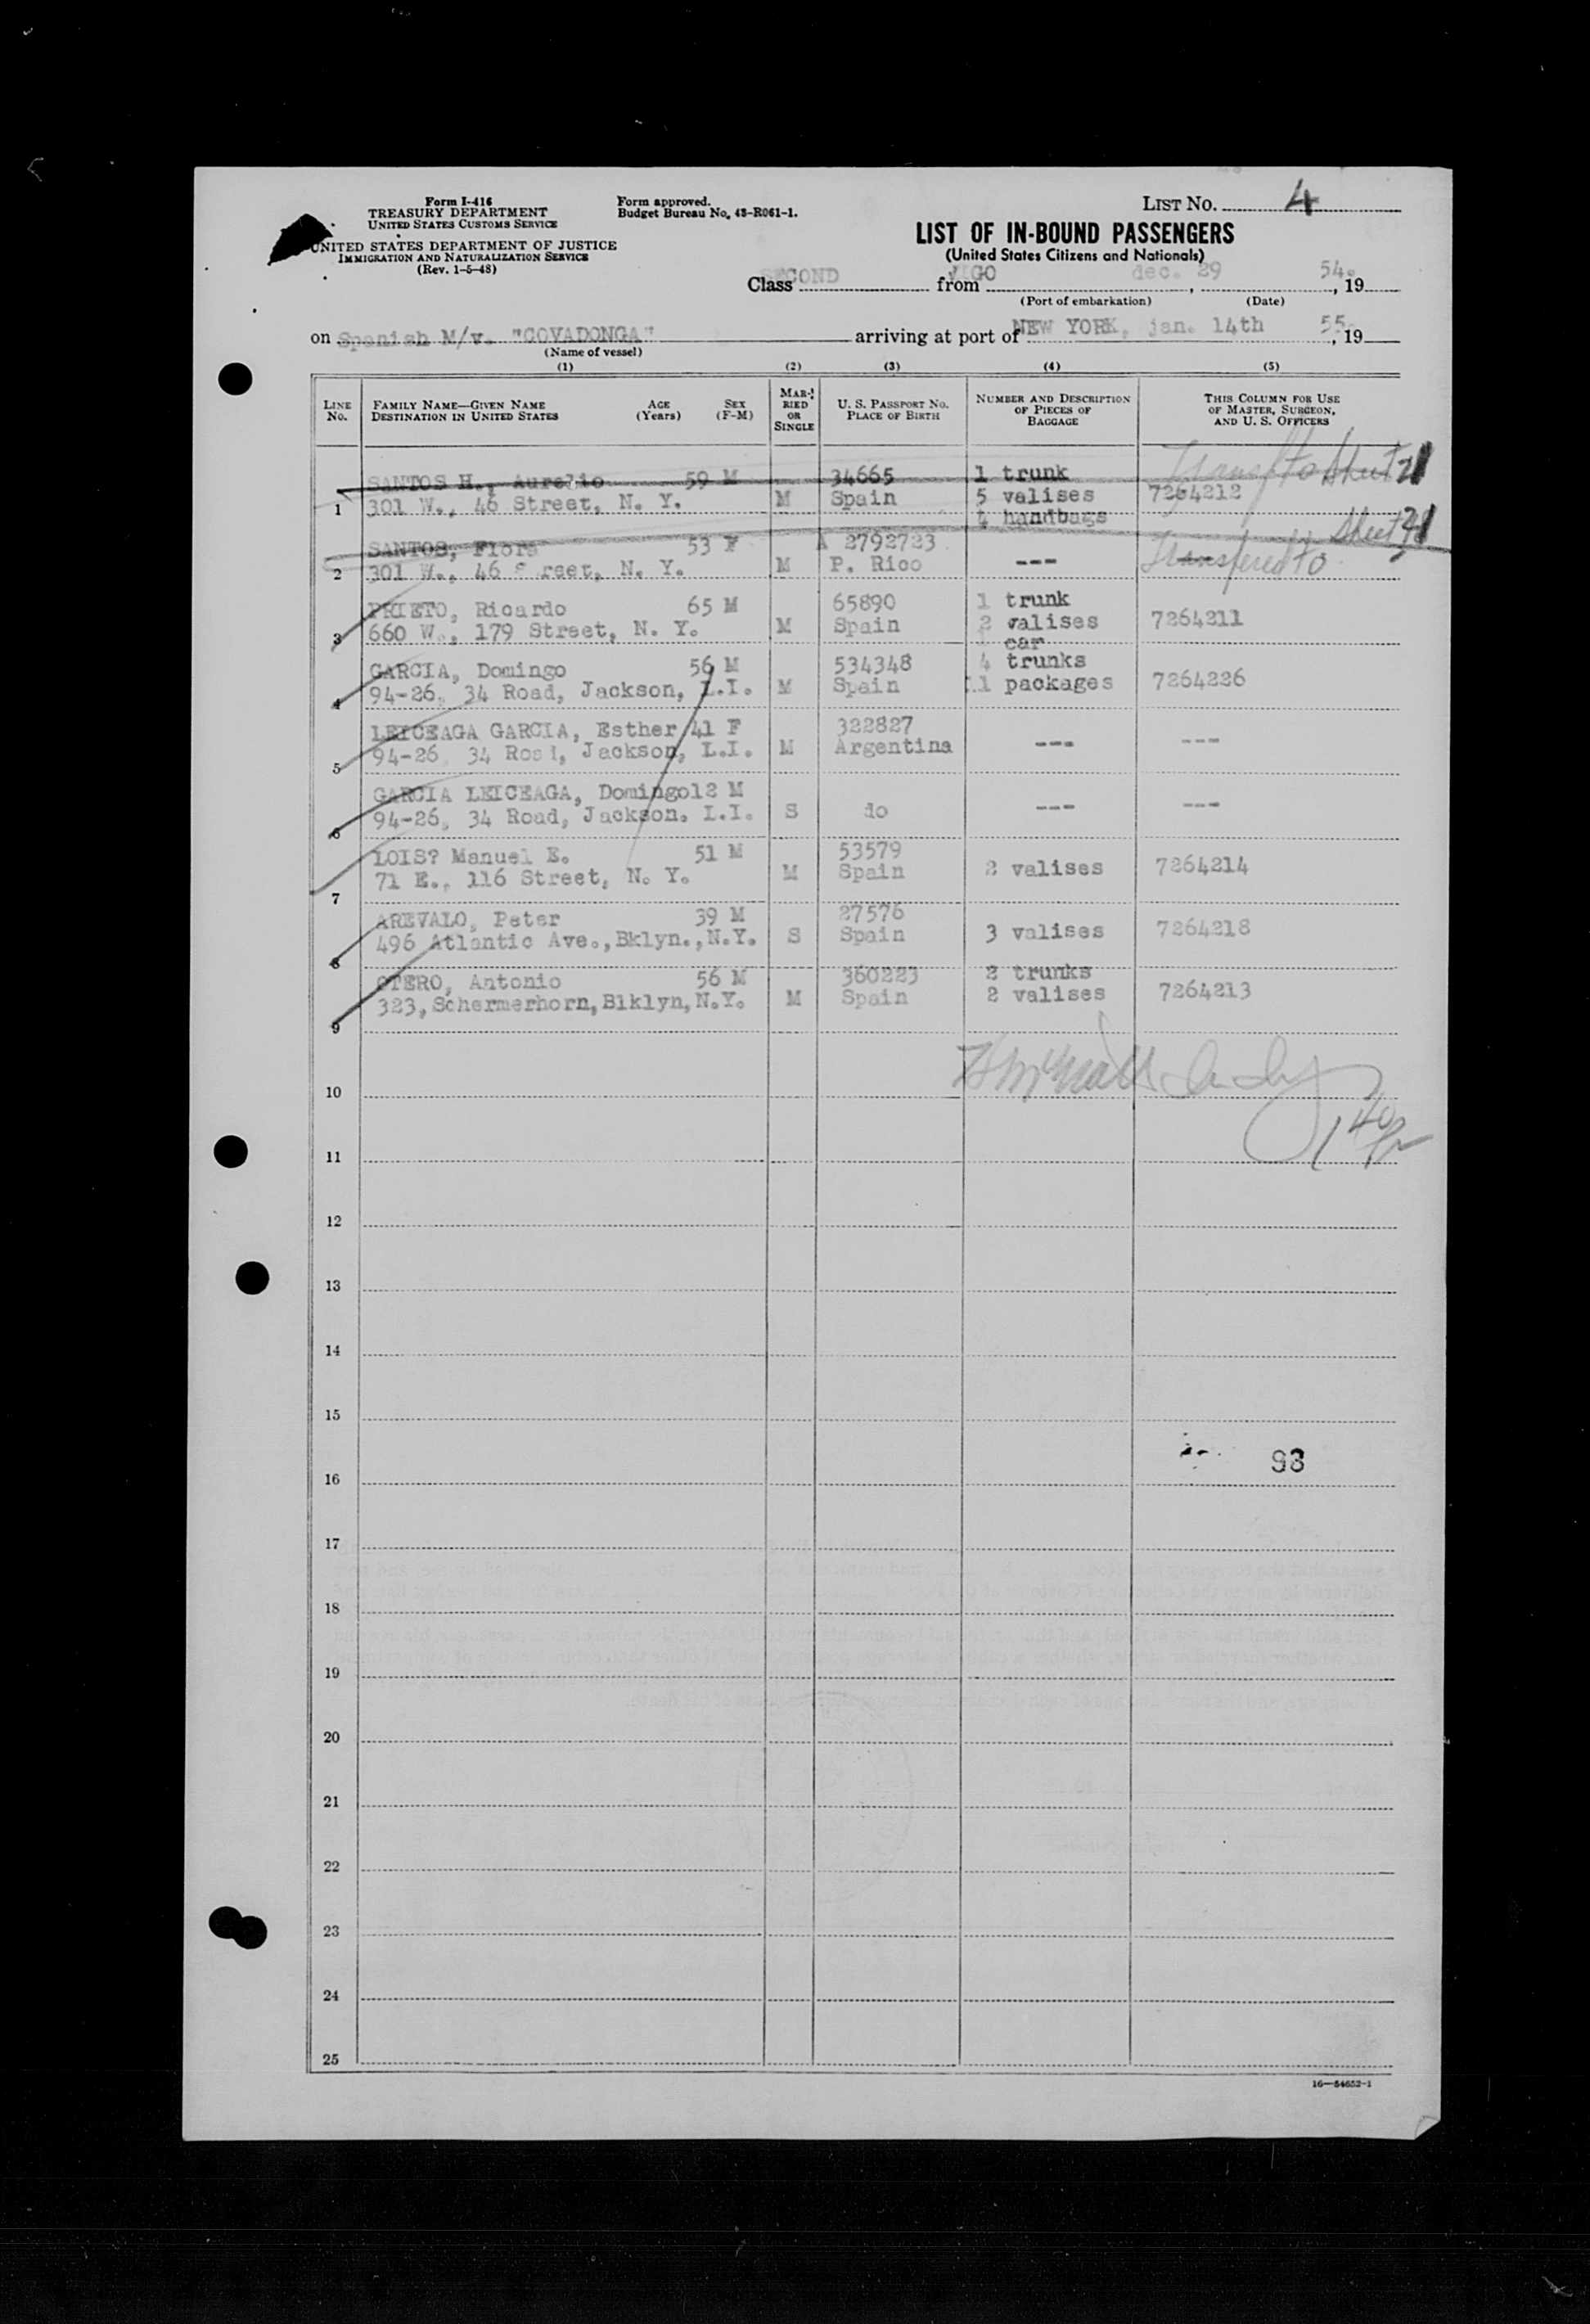 Form I-416
TREASURY DEPARTMENT
UNITED STATES CUSTOMS SERVICE
UNITED STATES DEPARTMENT OF JUSTICE
IMMIGRATION AND NATURALIZATION SERVICE
(Rev. 1-5-48)
Form approved.
Budget Bureau No. 43-R061-1.
LIST NO. 4
LIST OF IN-BOUND PASSENGERS
(United States Citizens and Nationals)
Class SECOND from VIGO dec. 29 54. , 19
(Port of embarkation) (Date)
on Spanish M/v. "COVADONGA" arriving at port of NEW YORK, jan. 14th 55. , 19
(Name of vessel)
(1) (2) (3) (4) (5)
LINE NO. FAMILY NAME—GIVEN NAME DESTINATION IN UNITED STATES AGE (Years) SEX (F-M) MARRIED OR SINGLE U. S. PASSPORT NO. PLACE OF BIRTH NUMBER AND DESCRIPTION OF PIECES OF BAGGAGE THIS COLUMN FOR USE OF MASTER, SURGEON, AND U. S. OFFICERS
SANTOS H., Aurelio 59 M 34665 1 trunk to Sheet 21
1 301 W., 46 Street, N. Y. M Spain 5 valises 7264212
4 handbags
SANTOS, Flora 53 F A 2792723 Sheet 21
2 301 W., 46 S reet, N. Y. M P. Rico --- Transfered to
PRIETO, Ricardo 65 M 65890 1 trunk
3 660 W., 179 Street, N. Y. M Spain 2 valises 7264211
1 car
GARCIA, Domingo 56 M 534348 4 trunks
4 94-26, 34 Road, Jackson, L.I. M Spain 11 packages 7264226
LEICEAGA GARCIA, Esther 41 F 322827
5 94-26, 34 Road, Jackson, L.I. M Argentina --- ---
GARCIA LEICEAGA, Domingo12 M
6 94-26, 34 Road, Jackson. L.I. S do --- ---
LOIS? Manuel E. 51 M 53579
7 71 E., 116 Street, N. Y. M Spain 2 valises 7264214
AREVALO, Peter 39 M 27576
8 496 Atlantic Ave., Bklyn., N.Y. S Spain 3 valises 7264218
OTERO, Antonio 56 M 360223 2 trunks
9 323, Schermerhorn, Blklyn, N.Y. M Spain 2 valises 7264213
10
11
12
13
14
15
93
16
17
18
19
20
21
22
23
24
25
16—54652-1